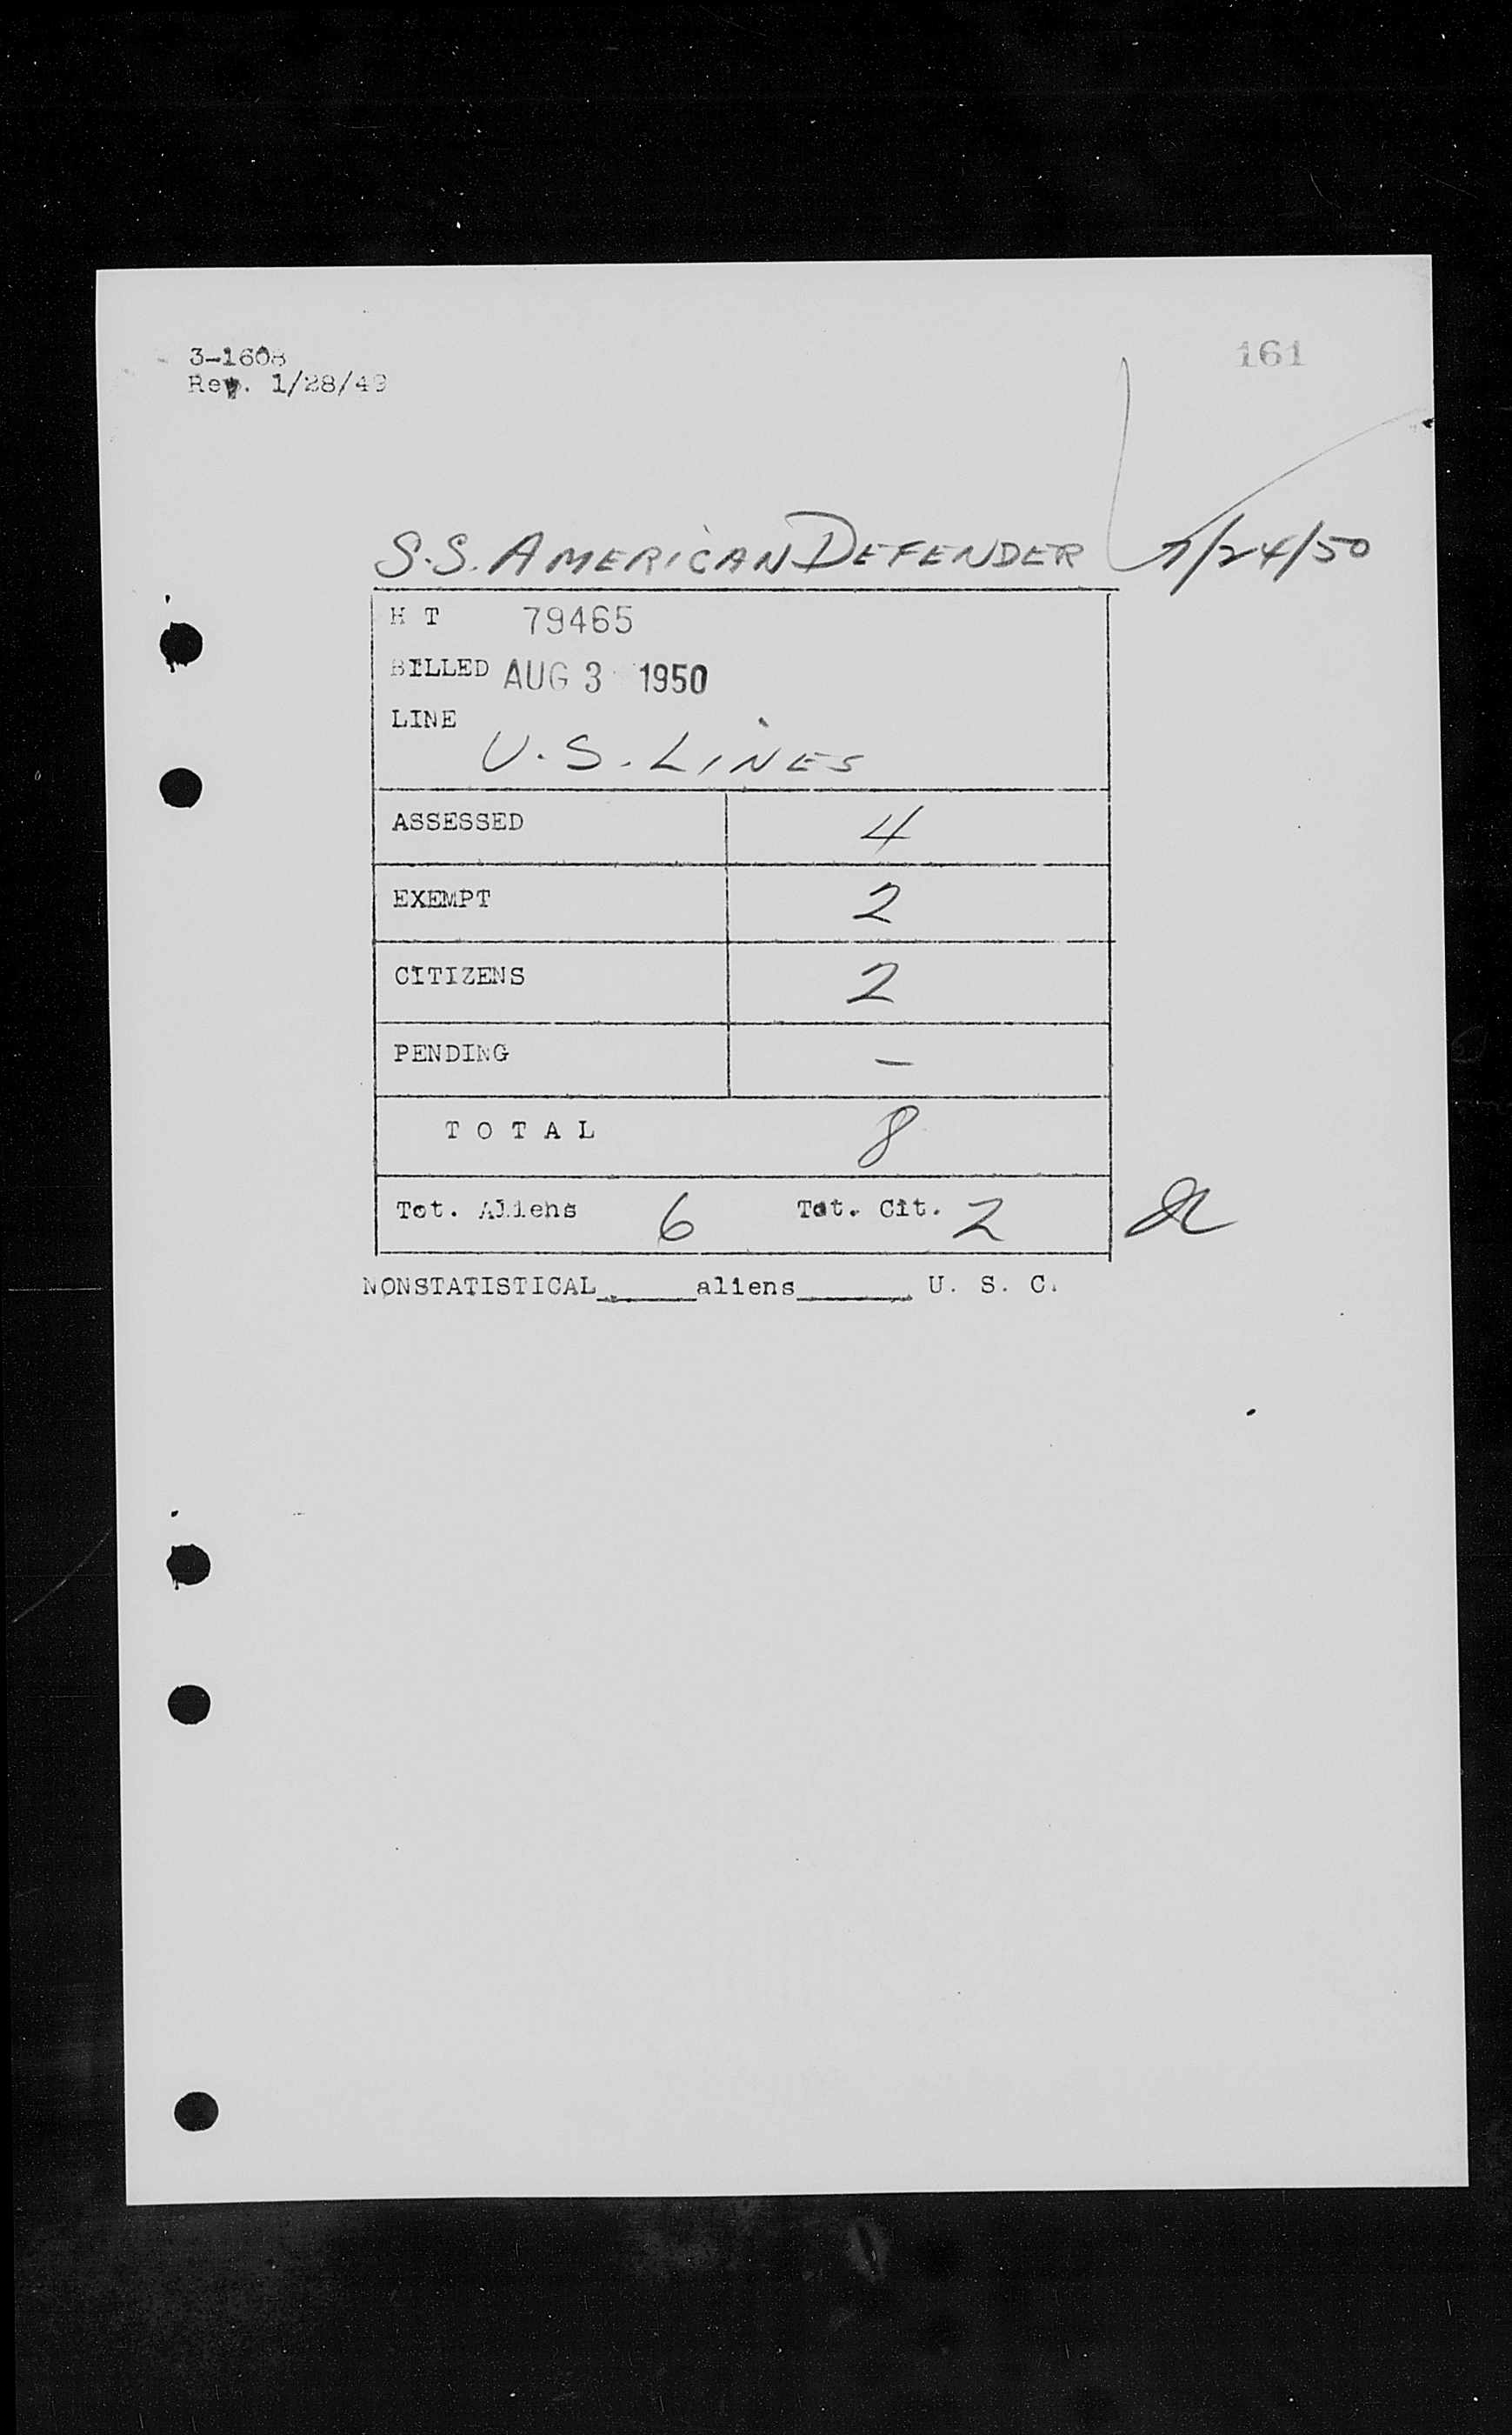 161
3-1608
Rev. 1/28/49
S.S. AMERICAN DEFENDER 7/24/50
H T 79465
BILLED AUG 3 1950
LINE
U.S. LINES
ASSESSED 4
EXEMPT 2
CITIZENS 2
PENDING –
T O T A L 8
Tot. Aliens 6 Tot. Cit. 2
NONSTATISTICAL_____aliens______ U. S. C.